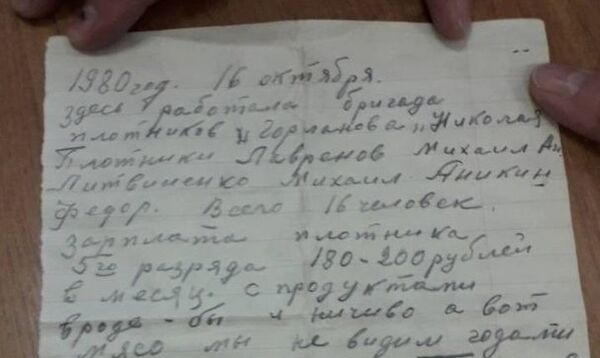 1980 год. 16 октября.
Здесь работала бригада
плотников "Горланова" Никола
Плотники Лавренов Михаил Ан.
Литвиненко Михаил Аникин
Федор. Всего 16 человек.
Зарплата плотника
5го разряда 180-200 рублей
в месяц. с продуктами
вроде-бы и ничиво а вот
мясо мы не видим годами